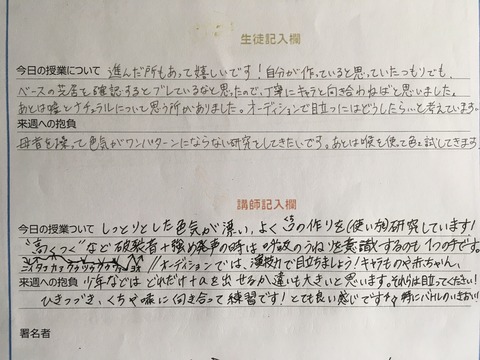 生徒記入欄
今日の授業について 進んだ所もあって嬉しいです!自分が作っていると思っていたつもりでも、
ベースの芝居を確認するとブレているなと思ったので、丁寧にキャラと向き合わねばと思いました。
あとは嘘とナチュラルについて思う所がありました。オーディションで目立つにはどうしたら…と考えています。
来週への抱負
母音を使って色気がワンパターンにならない研究をしてきたいです。あとは喉を使って色々試してきます
講師記入欄
今日の授業ついて しっとりとした色気が漂い、よく口の作りを(使い方)研究しています!
"高くつく"など破裂音+強め発声の時は のうねりを意識するのも1つの手です。
オーディションでは、演技力で目立ちましょう!キャラものや赤ちゃん、
来週への抱負 少年などは どれだけ+αを出せるか違いも大きいと思います。それらは目立ってください!
ひきつづき、くちや喉に向き合って練習です!とても良い感じですよ 特にバトルのいきおい!
署名者